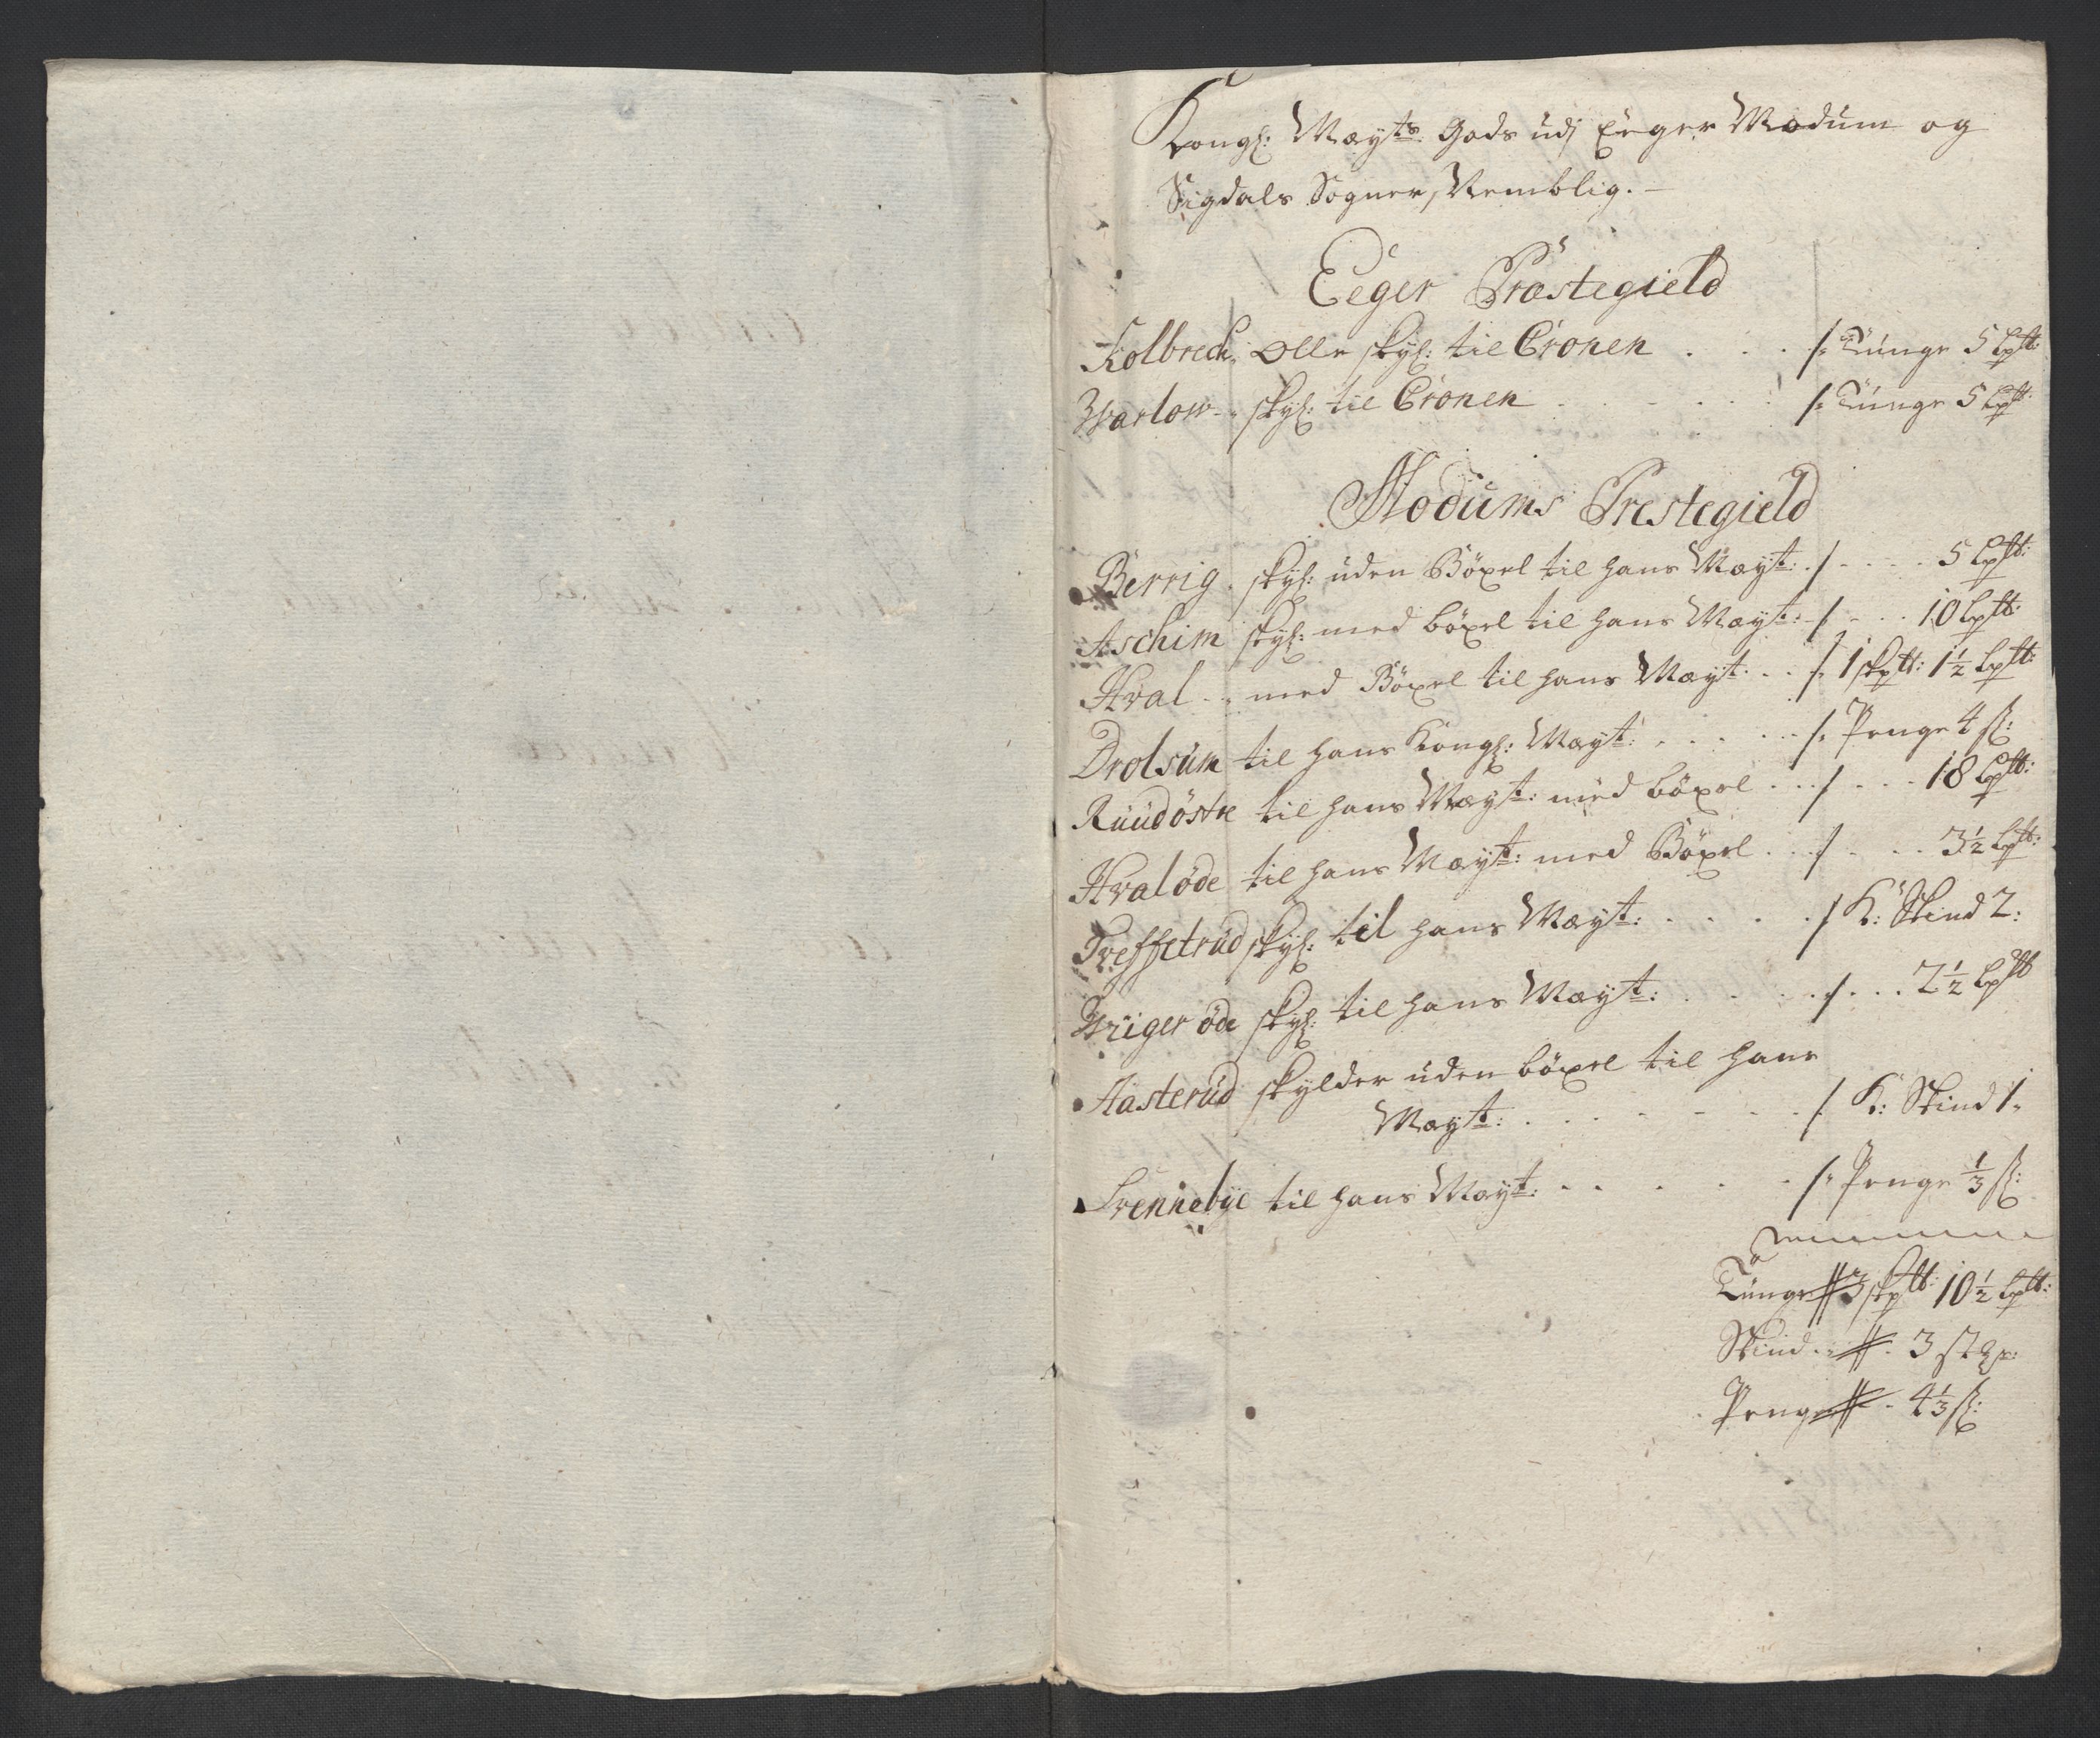 Kongl: Mayts Gods udj Eeger Modum og
Sigdals Sogner, Nemblig.
Eeger Præstegield
Kolbrech Olle skyl: til Cronen . . . /: Tunge 5 Lp℔:
Warlow skyl: til Cronen . . . . . /: Tunge 5 Lp℔:
Modums Prestegield
Berrig skyl: uden Böxel til hans Mayt: / . . . 5 Lp℔:
Aschim skyl: med böxel til hans Mayt: / . . . 10 Lp℔:
Hval med Böxel til hans Mayt: . . /: 1 skp℔: 1½ Lp℔:
Drolsum til hans Kongl: Mayt: . . . . . /: Penge 4 ß:
Ruud östre til hans Mayt: med böxel . . . / . . . 18 Lp℔:
Hval öde til hans Mayt: med Böxel . . . / . . . 3½ Lp℔:
Treffetrud skyl: til hans Mayt: . . . . . / K: Skind 2:
öde skyl: til hans Mayt: . . . . . / . . . 2½ Lp℔
Aasterud skylder uden böxel til hans
Mayt: . . . . . . . /. K: Skind 1.
Svennebye til hans Mayt: . . . . . /: Penge ⅓ ß:
Tunge // 3 skp℔: 10½ Lp℔:
Skind // 3 st
Penge // 4⅓ ß: